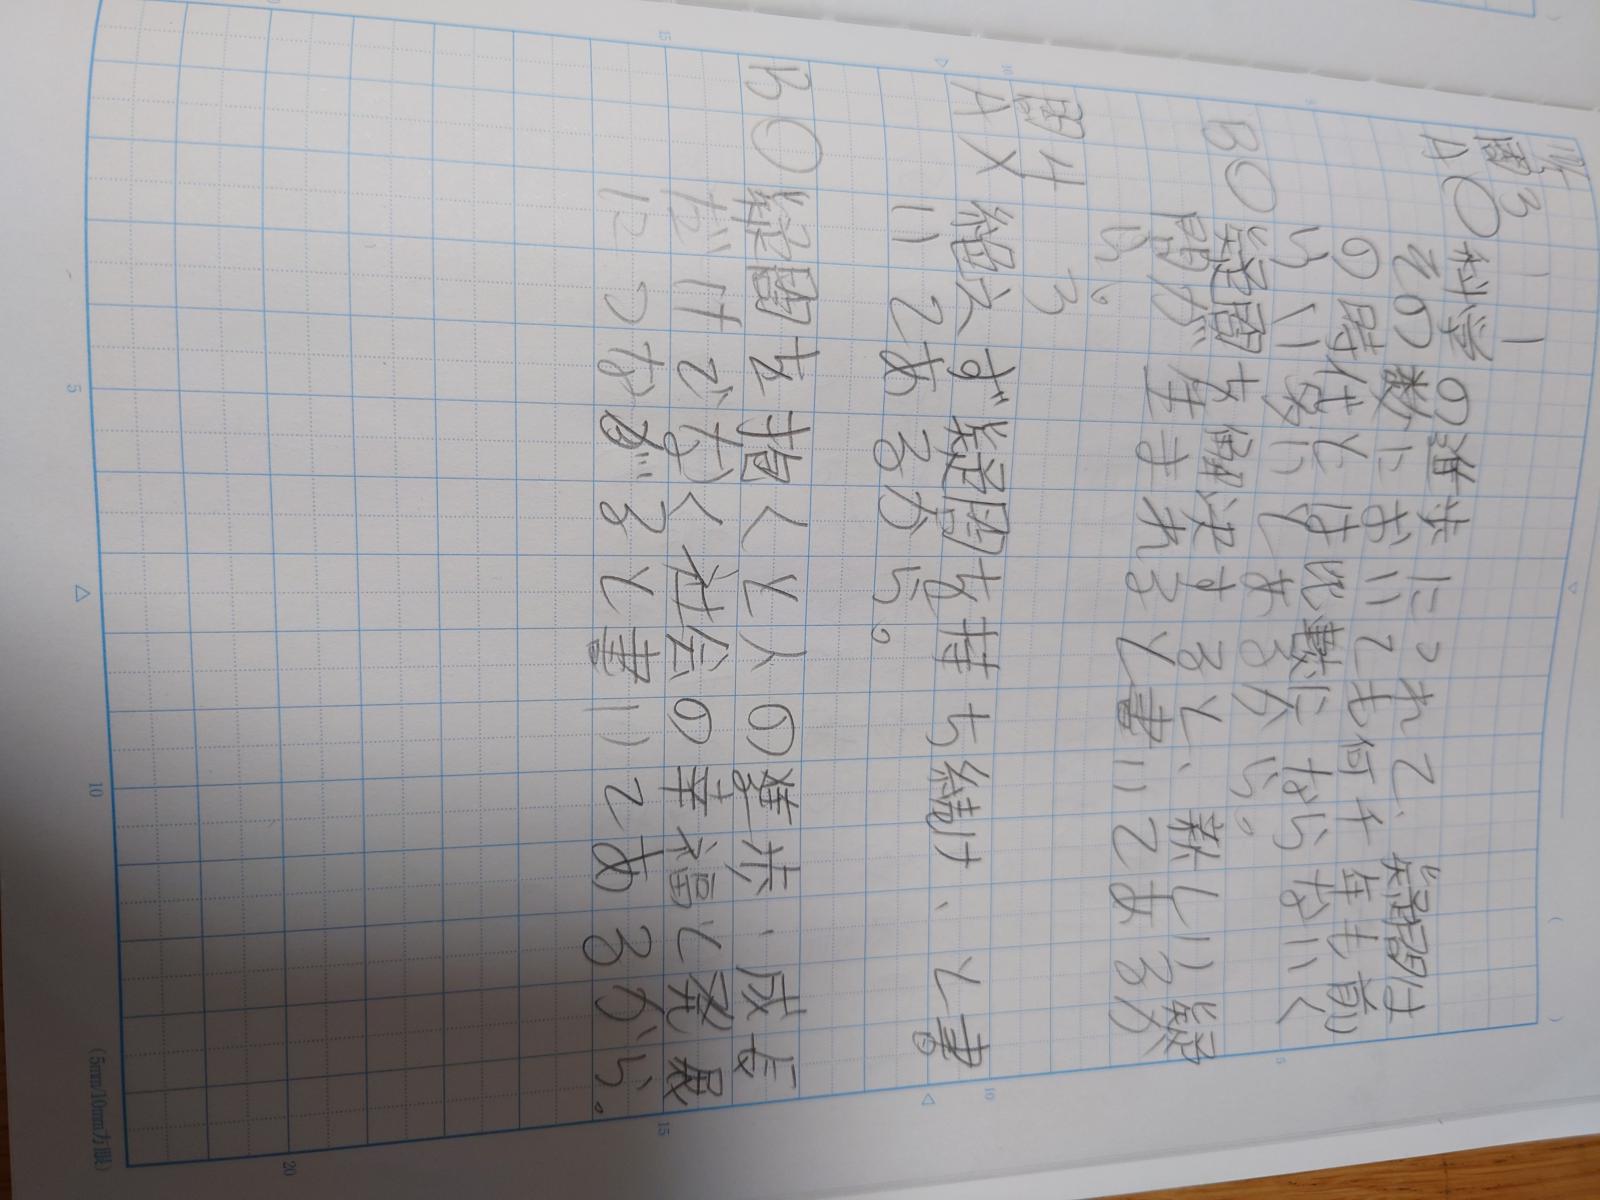 問3 1
A○科学の進歩につれて、疑問は
その数においても何千年も前
の時代とは比較にならないく
らい多いとあるから。
B○疑問を解決すると、新しい疑
問が生まれると書いてあるか
ら。
問4 3
A×絶えず疑問を持ち続け、と書
いてあるから。
B○疑問を抱くと人の進歩・成長
だけでなく社会の幸福と発展
につながると書いてあるから。
5
10
15
20
(5mm/10mm方眼)